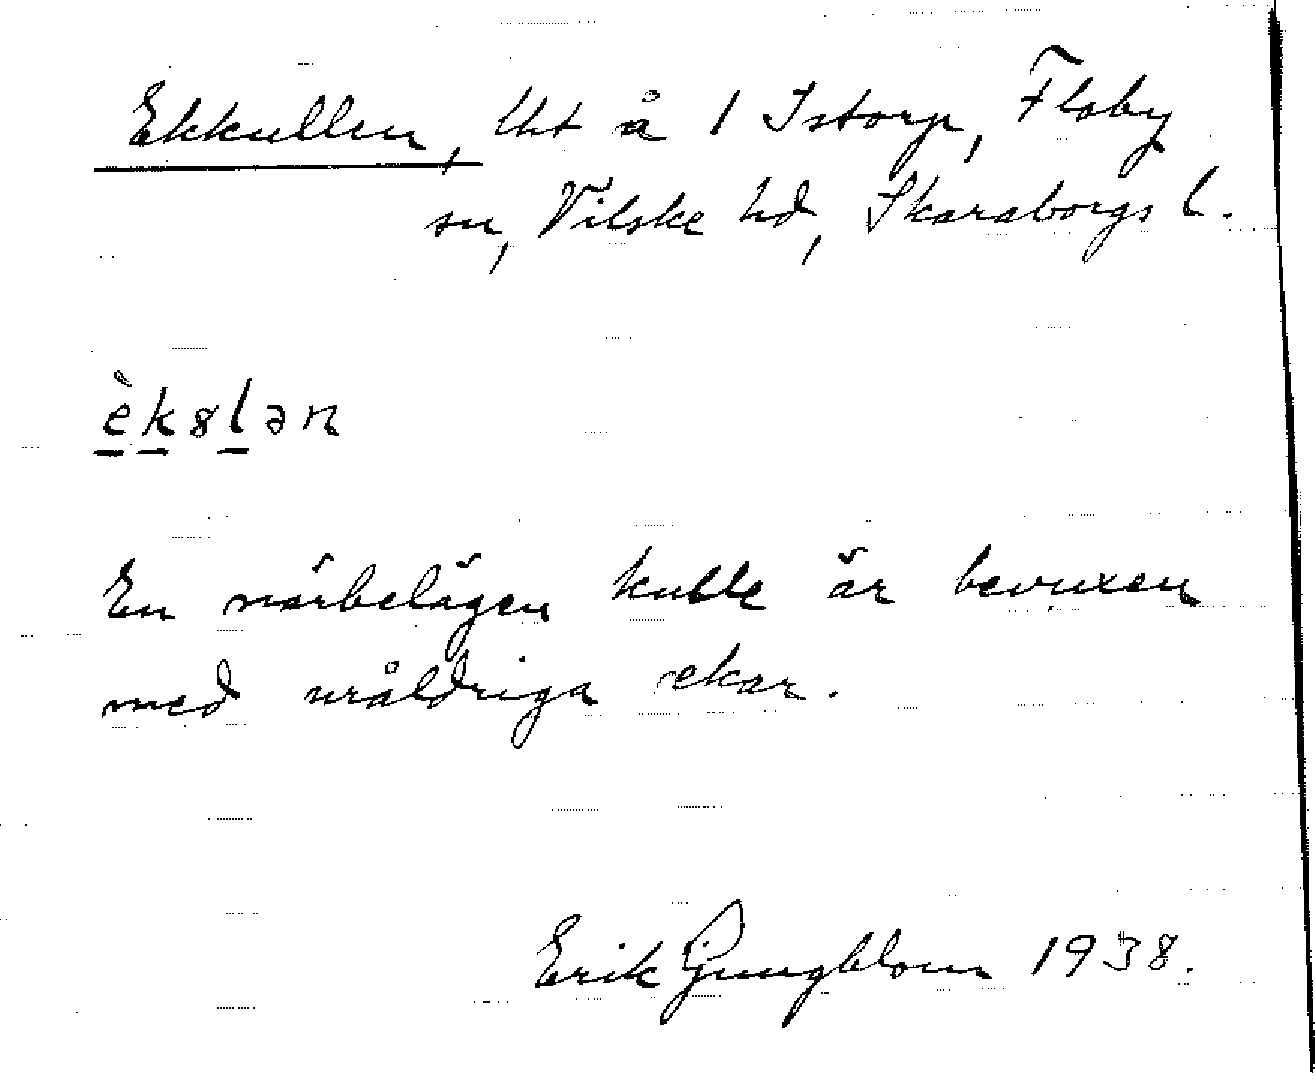 Ekkullen, lht å 1 Istorp, Floby
sn, Vilske hd, Skaraborgs l.
èk8lən
En närbelägen kulle är bevuxen
med uråldriga ekar.
Erik Ljungblom 1938.